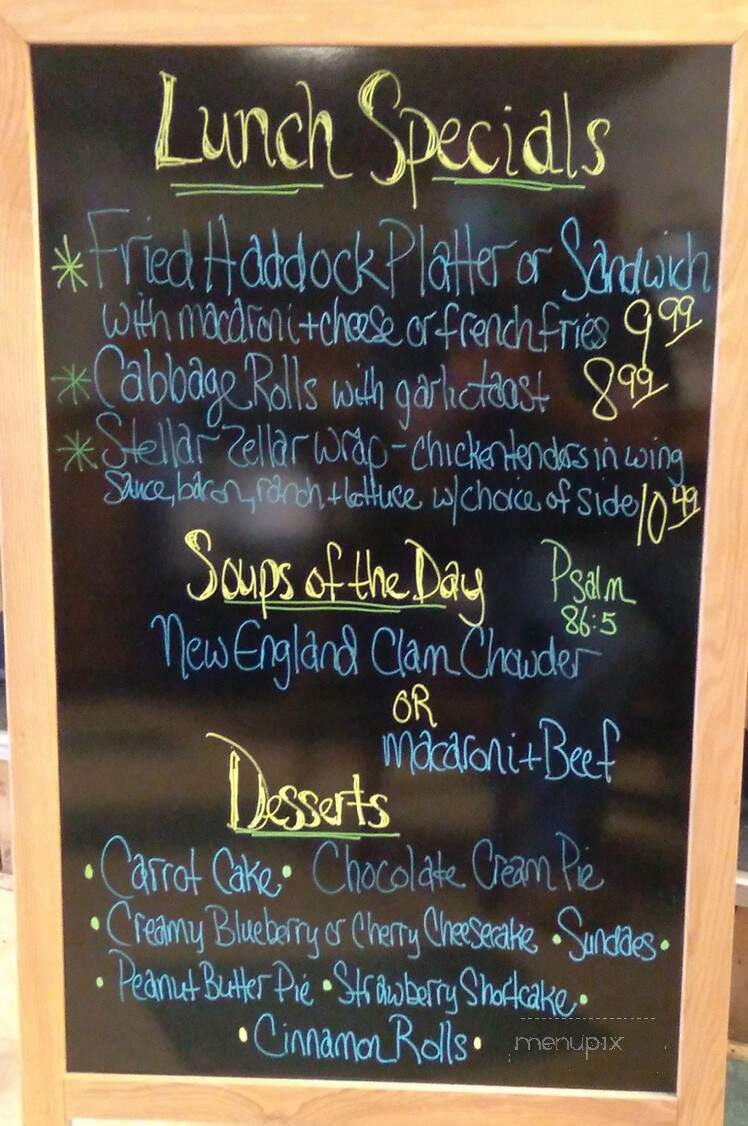 Lunch Specials
* Fried Haddock Platter or Sandwich
with macaroni + cheese or french fries 9.99
* Cabbage Rolls with garlic toast 8.99
* Stellar Zellar Wrap - chicken tenders in wing
Sauce, bacon, ranch + lettuce w/ choice of side 10.49
Soups of the Day
Psalm
86:5
New England Clam Chowder
OR
Macaroni + Beef
Desserts
• Carrot Cake • Chocolate Cream Pie
• Creamy Blueberry or Cherry Cheesecake • Sundaes •
• Peanut Butter Pie • Strawberry Shortcake •
• Cinnamon Rolls •
menupix